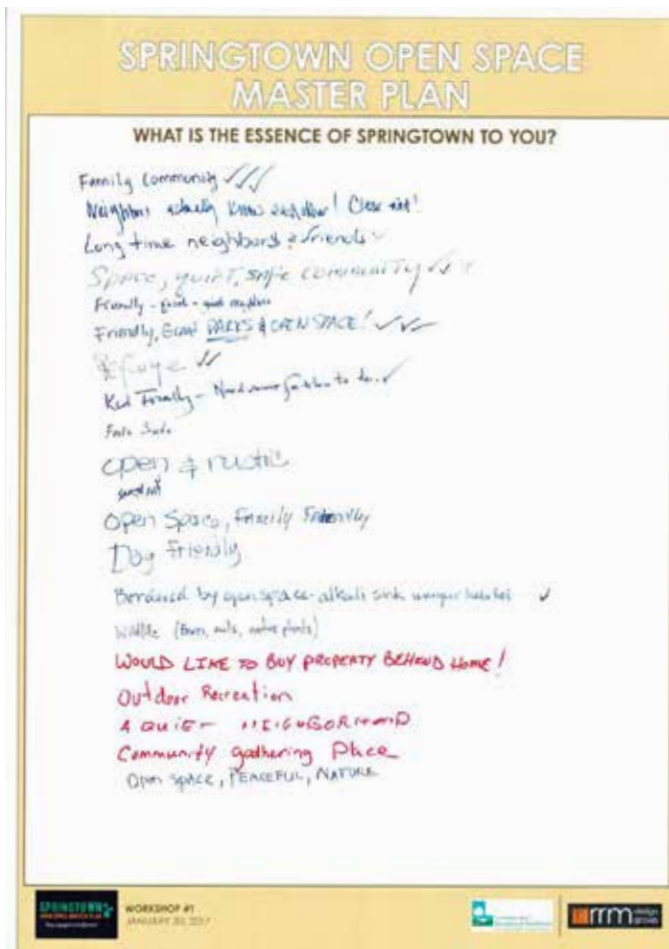 SPRINGTOWN OPEN SPACE
MASTER PLAN
WHAT IS THE ESSENCE OF SPRINGTOWN TO YOU?
Family Community ✓✓✓
Neighbors actually know each other! Close knit!
Long time neighbors & friends ✓
Space, quiet, safe community ✓✓✓
Friendly - quiet -
Friendly, PARKS & OPEN SPACE! ✓✓✓
Refuge ✓✓
Kid Friendly - Need more for to do. ✓
Open & rustic
Open Space, Family Friendly
Dog Friendly
Bordered by open space - alkali sink unique habitat ✓
Wildlife (native plants)
WOULD LIKE TO BUY PROPERTY BEHIND HOME!
Outdoor Recreation
A QUIET NEIGHBORHOOD
Community gathering Place
Open space, PEACEFUL, NATURE
SPRINGTOWN
WORKSHOP #1
JANUARY 30, 2017
rrm design group